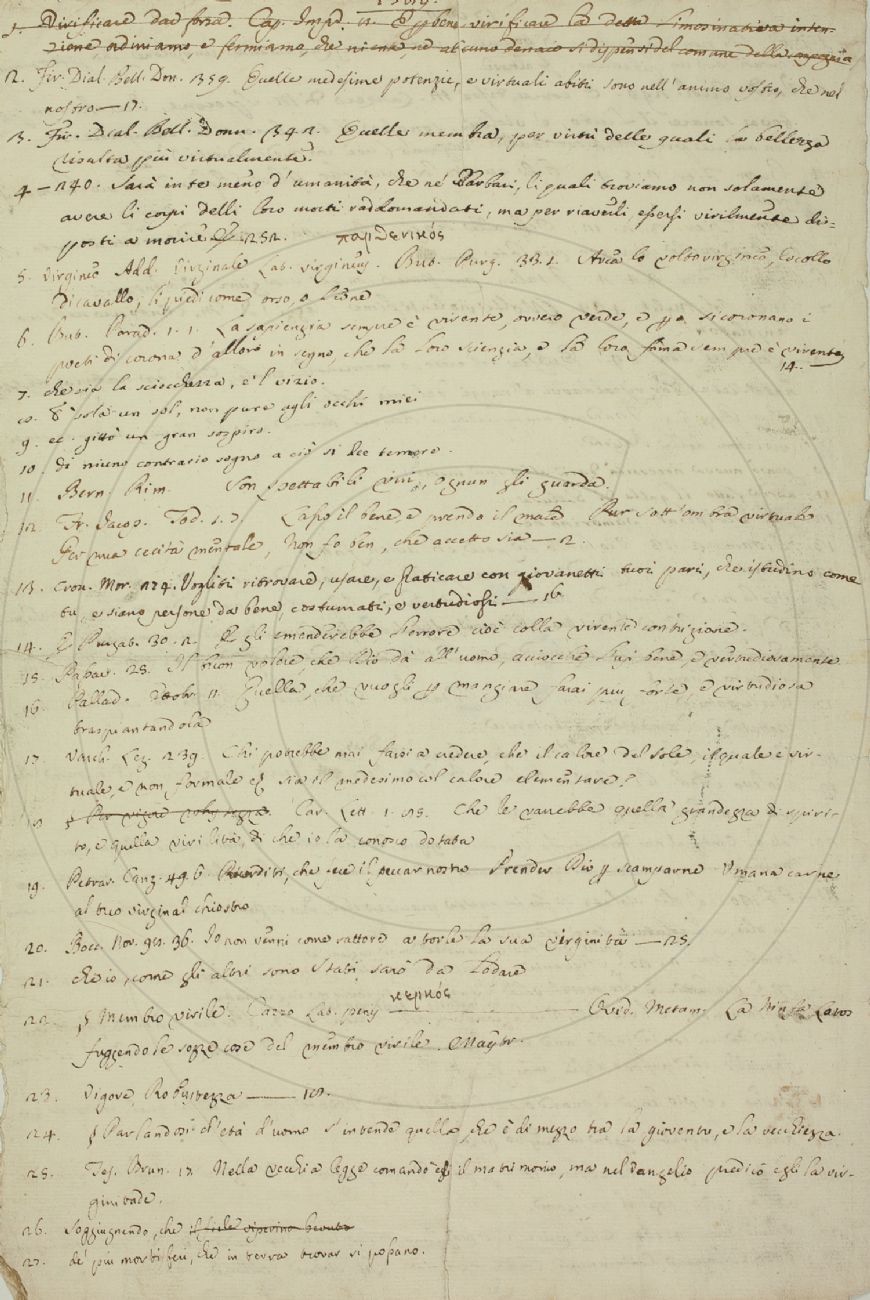 1. Virificare dar forza. Cap. Impr. 11. E per bene virificare la detta limosinativa inten-
zione, ordiniamo, e fermiamo, che niente, nè alcuno denaco si dispensi del comune della
2. Fir. Dial. Bell. Don. 359. Quelle medesime potenzie, e virtuali abiti sono nell'animo vostro, che nel
nostro — 17.
3. Fir. Dial. Bell. Donn. 342. Quelle membra, per virtù delle quali la bellezza
risulta più virtualmente.
4 — 240. Sarà in te meno d'umanità, che ne' Barbari, li quali troviamo non solamente
avere li corpi delli loro morti raddomandati, ma per riaverli, essersi virilmente di-
sposti a morire 252. παρθενικός
5. Virgineo Add. Virginale Lat. virgineus. But. Purg. 33.1. Avea lo volto virgineo, lo collo
di cavallo, li piedi come orso, o Leone
6. But. Parad. 1. 1. La sapienzia sempre è virente, ovvero verde, e però si coronano i
poeti di corona d'alloro in segno, che la loro scienzia, e la loro fama sempre è virente
14.
7. che sia la sciocchezza, e 'l vizio.
8. È sola un sol, non pure agli occhi miei
9. ec. gittò un gran sospiro.
10. di niuno contrario sogno a ciò si dee temere.
11. Bern. Rim. Son spettabili viri, ognun gli guarda.
12. Fr. Jacop. Tod. 1. 7. Lasso il bene, e prendo il male Pur sott'ombra virtuale
Per mia cecità mentale, Non fo ben, che accetto sia — 2.
13. Cron. Mor. 274. Vogliti ritrovare, usare, e praticare con giovanetti tuoi pari, che istudino come
tu, e siano persone da bene, costumati, e vertudiosi — 16.
14. E Purgat. 30. 2. Egli emenderebbe l'errore cioè colla virente contrizione.
15. Passav. 28. Il buon volere, che Dio dà all'uomo, acciocchè lusi bene, e vertudiosamente
16. Pallad. Ottobr. 11. Quella, che vuogli per mangiare, farai piu forte, e virtudiosa
traspiantandola
17. Varch. Lez. 239. Chi potrebbe mai farsi a credere, che il calore del sole, il quale è vir-
tuale, e non formale ec. sia il medesimo col calore elementare?
18 Per vigore robustezza. Car. Lett. 1. 18. Che le varrebbe quella grandezza di spiri-
to, e quella virilità, di che io la conosco dotata
19. Petrar. Canz. 49. 6. Ricorditi, che fece il peccar nostro Prender Dio per scamparne Umana carne
al tuo virginal chiostro
20. Bocc. Nov. 98. 36. Io non venni come rattore a torle la sua virginità — 25.
21. che io, come gli altri sono stati, sarò da lodare
22. § Membro virile. Cazzo Lat. penis κερκός — Ovid. Metam. La Ninfa Lotos
fuggendo le sozze cose del membro virile. Maestr.
23. Vigore, Robustezza — 18.
24. § Parlandosi d'età d'uomo s'intende quella, che è di mezzo tra la gioventù, e la vecchiezza.
25. Tes. Brun. 17. Nella vecchia legge comandò egli il matrimonio, ma nel Vangelio predicò egli la vir-
ginitade.
26. Soggiugnendo, che il fiele viperino bevuto
27. de' più mortiferi, che in terra trovar si possano.